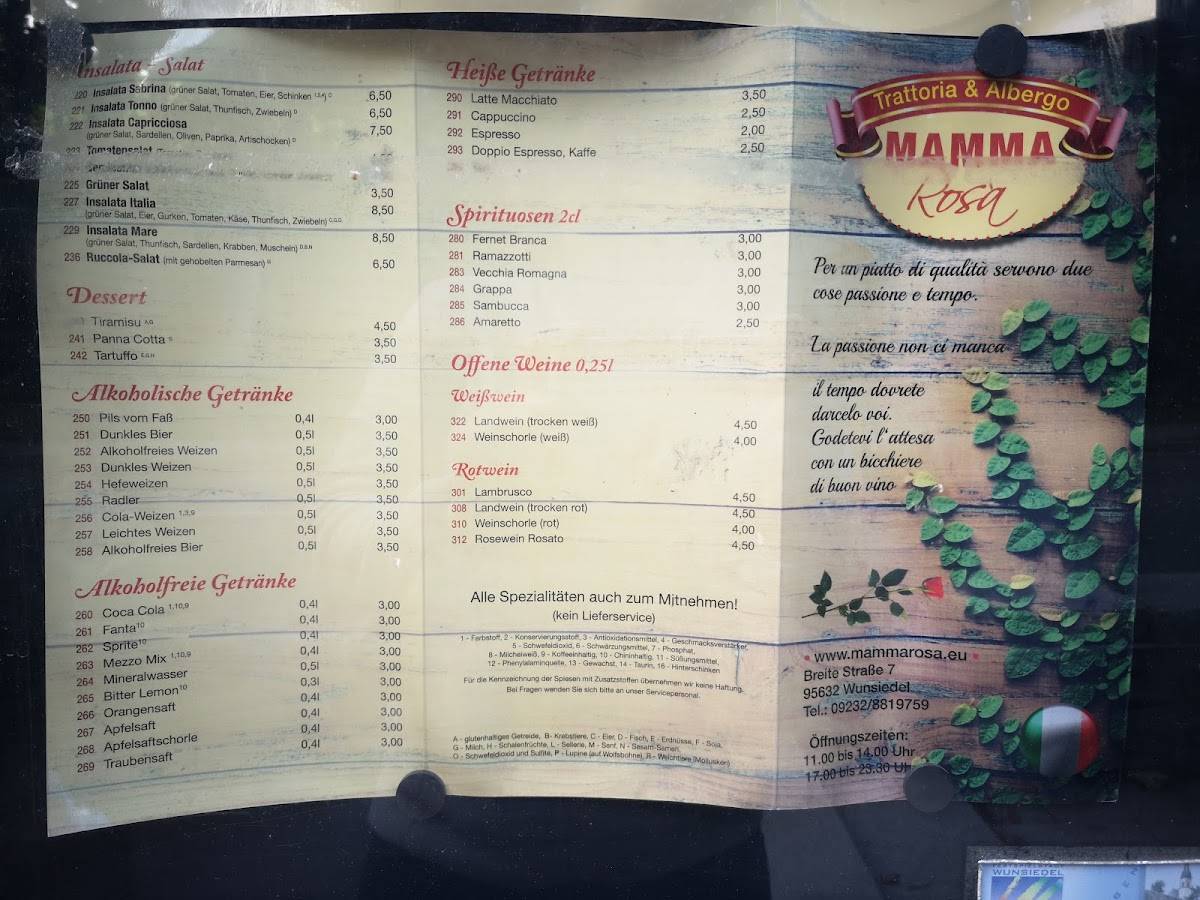 Insalata - Salat
220 Insalata Sabrina (grüner Salat, Tomaten, Eier, Schinken 6,50
221 Insalata Tonno (grüner Salat, Thunfisch, Zwiebeln) D 6,50
222 Insalata Capricciosa 7,50
(grüner Salat, Sardellen, Oliven, Paprika, Artischocken) D
Tomatensalat
225 Grüner Salat 3,50
227 Insalata Italia 8,50
(grüner Salat, Eier, Gurken, Tomaten, Käse, Thunfisch, Zwiebeln) C,G,D,
229 Insalata Mare 8,50
(grüner Salat, Thunfisch, Sardellen, Krabben, Muscheln) D,B,N
236 Ruccola-Salat (mit gehobelten Parmesan) G 6,50
Dessert
Tiramisu A,G 4,50
241 Panna Cotta G 3,50
242 Tartuffo E,G,H 3,50
Alkoholische Getränke
250 Pils vom Faß 0,4l 3,00
251 Dunkles Bier 0,5l 3,50
252 Alkoholfreies Weizen 0,5l 3,50
253 Dunkles Weizen 0,5l 3,50
254 Hefeweizen 0,5l 3,50
255 Radler 0,5l 3,50
256 Cola-Weizen 1,3,9 0,5l 3,50
257 Leichtes Weizen 0,5l 3,50
258 Alkoholfreies Bier 0,5l 3,50
Alkoholfreie Getränke
260 Coca Cola 1,10,9 0,4l 3,00
261 Fanta10 0,4l 3,00
262 Sprite10 0,4l 3,00
263 Mezzo Mix 1,10,9 0,4l 3,00
264 Mineralwasser 0,5l 3,00
265 Bitter Lemon10 0,3l 3,00
266 Orangensaft 0,4l 3,00
267 Apfelsaft 0,4l 3,00
268 Apfelsaftschorle 0,4l 3,00
269 Traubensaft
Heiße Getränke
290 Latte Macchiato 3,50
291 Cappuccino 2,50
292 Espresso 2,00
293 Doppio Espresso, Kaffe 2,50
Spirituosen 2cl
280 Fernet Branca 3,00
281 Ramazzotti 3,00
283 Vecchia Romagna 3,00
284 Grappa 3,00
285 Sambucca 3,00
286 Amaretto 2,50
Offene Weine 0,25l
Weißwein
322 Landwein (trocken weiß) 4,50
324 Weinschorle (weiß) 4,00
Rotwein
301 Lambrusco 4,50
308 Landwein (trocken rot) 4,50
310 Weinschorle (rot) 4,00
312 Rosewein Rosato 4,50
Alle Spezialitäten auch zum Mitnehmen!
(kein Lieferservice)
1 - Farbstoff, 2 - Konservierungsstoff, 3 - Antioxidationsmittel, 4 - Geschmacksverstärker,
5 - Schwefeldioxid, 6 - Schwärzungsmittel, 7 - Phosphat,
8 - Milcheiweiß, 9 - Koffeeinhaltig, 10 - Chininhaltig, 11 - Süßungsmittel,
12 - Phenylalaminquelle, 13 - Gewachst, 14 - Taurin, 16 - Hinterschinken
Für die Kennzeichnung der Speisen mit Zusatzstoffen übernehmen wir keine Haftung.
Bei Fragen wenden Sie sich bitte an unser Servicepersonal.
A - glutenhaltiges Getreide, B- Krebstiere, C - Eier, D - Fisch, E - Erdnüsse, F - Soja,
G - Milch, H - Schalenfrüchte, L - Sellerie, M - Senf, N - Sesam-Samen,
O - Schwefeldioxid und Sulfite, P - Lupine (auf Wolfsbohne), R - Weichtiere (Mollusken)
Trattoria & Albergo
MAMMA
Rosa
Per un piatto di qualità servono due
cose passione e tempo.
La passione non ci manca
il tempo dovrete
darcelo voi.
Godetevi l'attesa
con un bicchiere
di buon vino
www.mammarosa.eu
Breite Straße 7
95632 Wunsiedel
Tel.: 09232/8819759
Öffnungszeiten:
11.00 bis 14.00 Uhr
17.00 bis 23.30 Uhr
WUNSIEDEL